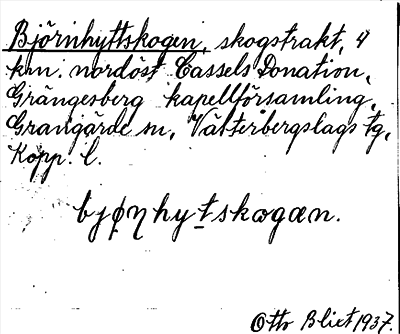 Björnhyttskogen, skogstrakt, 4
km. nordöst Cassels Donation,
Grängesberg kapellförsamling,
Grangärde sn, Västerbergslags tg,
Kopp. l.
bjɸηhytskogæn.
Otto Blixt 1937.